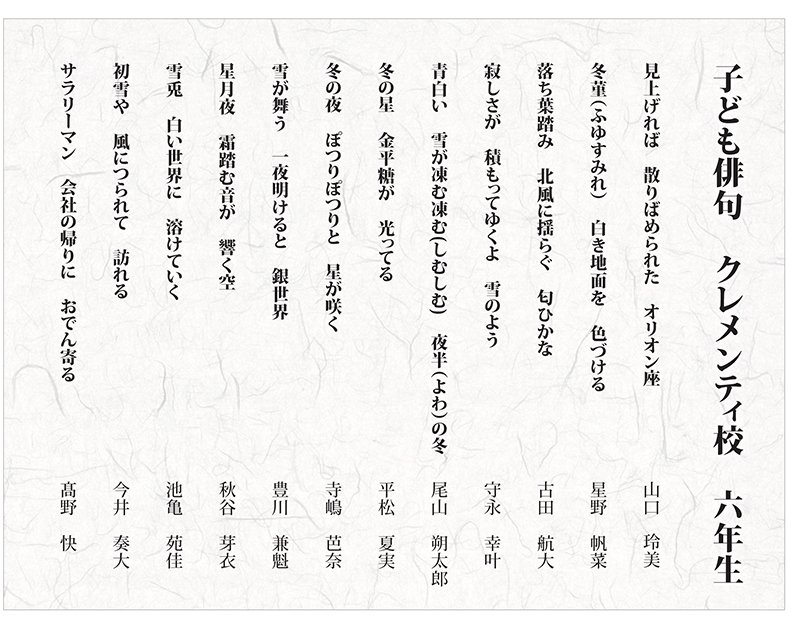 子ども俳句　クレメンティ校　六年生
見上げれば　散りばめられた　オリオン座　山口　玲美
冬菫(ふゆすみれ)　白き地面を　色づける　星野　帆菜
落ち葉踏み　北風に揺らぐ　匂ひかな　古田　航大
寂しさが　積もってゆくよ　雪のよう　守永　幸叶
青白い　雪が凍む凍む(しむしむ)　夜半(よわ)の冬　尾山　朔太郎
冬の星　金平糖が　光ってる　平松　夏実
冬の夜　ぽつりぽつりと　星が咲く　寺嶋　芭奈
雪が舞う　一夜明けると　銀世界　豊川　兼魁
星月夜　霜踏む音が　響く空　秋谷　芽衣
雪兎　白い世界に　溶けていく　池亀　苑佳
初雪や　風につられて　訪れる　今井　奏大
サラリーマン　会社の帰りに　おでん寄る　髙野　快